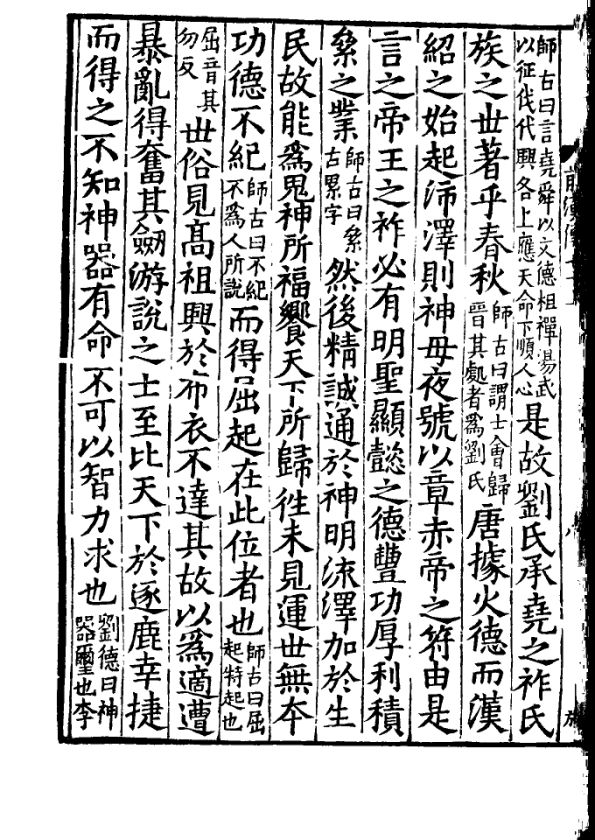 師古曰言堯舜以文德相禪湯武以征伐代興各上應天命下順人心是故劉氏承堯之祚氏
族之世著乎春秋師古曰謂士會歸晉其處者爲劉氏唐據火德而漢
紹之始起沛澤則神母夜號以章赤帝之符由是
言之帝王之祚必有明聖顯懿之德豐功厚利積
絫之業師古曰絫古累字然後精誠通於神明流澤加於生
民故能爲鬼神所福饗天下所歸往未見運世無本
功德不紀師古曰不紀不爲人所說而得屈起在此位者也師古曰屈起特起也
屈音其勿反世俗見高祖興於布衣不達其故以爲適遭
暴亂得奮其劒游說之士至比天下於逐鹿幸捷
而得之不知神器有命不可以智力求也劉德曰神器璽也李